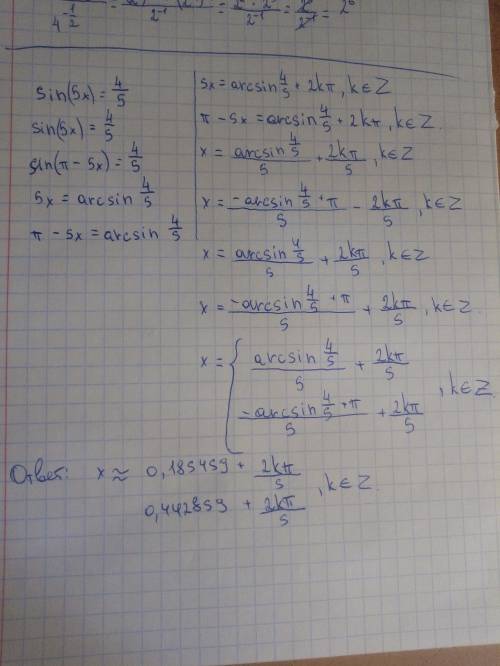 4^{-1/2} 2^{-1} 2^{-1} 2^{-1}
sin(5x) = 4/5
sin(5x) = 4/5
sin(π - 5x) = 4/5
5x = arcsin 4/5
π - 5x = arcsin 4/5
5x = arcsin 4/5 + 2kπ, k∈Z
π - 5x = arcsin 4/5 + 2kπ, k∈Z.
x = (arcsin 4/5)/5 + 2kπ/5, k∈Z
x = (-arcsin 4/5 + π)/5 - 2kπ/5, k∈Z
x = (arcsin 4/5)/5 + 2kπ/5, k∈Z
x = (-arcsin 4/5 + π)/5 + 2kπ/5, k∈Z.
x = { (arcsin 4/5)/5 + 2kπ/5
(-arcsin 4/5 + π)/5 + 2kπ/5 , k∈Z.
Ответ: x ≈ 0,185459 + 2kπ/5
0,442859 + 2kπ/5 , k∈Z.